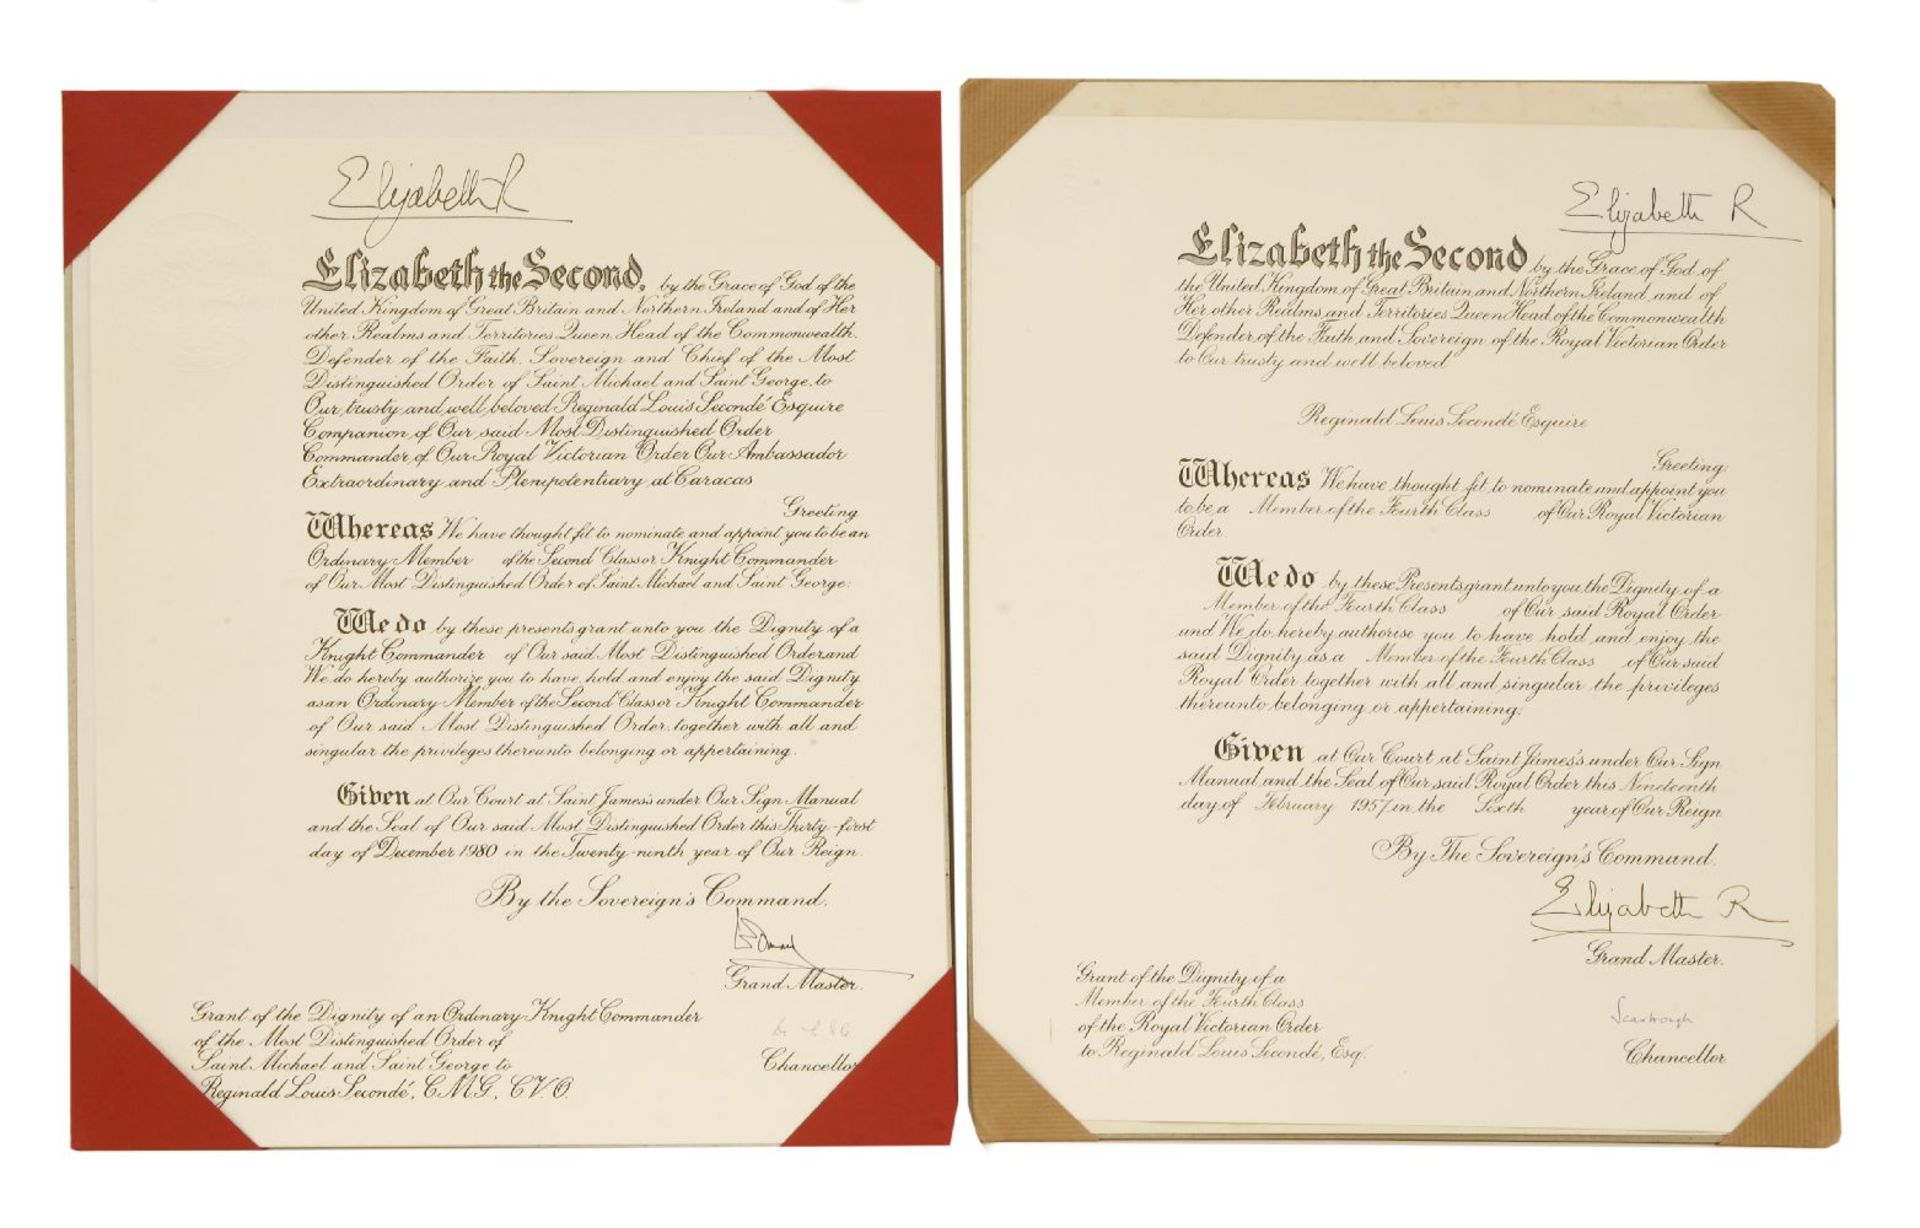 Elizabeth R
Elizabeth the Second, by the Grace of God of the
United Kingdom of Great Britain and Northern Ireland and of Her
other Realms and Territories Queen, Head of the Commonwealth,
Defender of the Faith, Sovereign and Chief of the Most
Distinguished Order of Saint Michael and Saint George, to
Our trusty and well beloved Reginald Louis Secondé Esquire
Companion of Our said Most Distinguished Order
Commander of Our Royal Victorian Order Our Ambassador
Extraordinary and Plenipotentiary at Caracas
Greeting
Whereas We have thought fit to nominate and appoint you to be an
Ordinary Member of the Second Class or Knight Commander
of Our Most Distinguished Order of Saint Michael and Saint George:
We do by these presents grant unto you the Dignity of a
Knight Commander of Our said Most Distinguished Order and
We do hereby authorize you to have, hold and enjoy the said Dignity
as an Ordinary Member of the Second Class or Knight Commander
of Our said Most Distinguished Order, together with all and
singular the privileges thereunto belonging or appertaining.
Given at Our Court at Saint James's under Our Sign Manual
and the Seal of Our said Most Distinguished Order this Thirty-first
day of December 1980 in the Twenty-ninth year of Our Reign.
By the Sovereign's Command.
Grand Master.
Grant of the Dignity of an Ordinary Knight Commander
of the Most Distinguished Order of
Saint Michael and Saint George to
Reginald Louis Secondé, C.M.G., C.V.O.
Chancellor
Elizabeth R
Elizabeth the Second by the Grace of God of
the United Kingdom of Great Britain and Northern Ireland and of
Her other Realms and Territories Queen Head of the Commonwealth
Defender of the Faith, and Sovereign of the Royal Victorian Order
to Our trusty and well beloved
Reginald Louis Secondé Esquire
Greeting:
Whereas We have thought fit to nominate and appoint you
to be a Member of the Fourth Class of Our Royal Victorian
Order.
We do by these Presents grant unto you the Dignity of a
Member of the Fourth Class of Our said Royal Order
and We do hereby authorise you to have hold and enjoy the
said Dignity as a Member of the Fourth Class of Our said
Royal Order together with all and singular the privileges
thereunto belonging or appertaining.
Given at Our Court at Saint James's under Our Sign
Manual and the Seal of Our said Royal Order this Nineteenth
day of February 1957 in the Sixth year of Our Reign
By The Sovereign's Command.
Elizabeth R
Grand Master.
Grant of the Dignity of a
Member of the Fourth Class
of the Royal Victorian Order
to Reginald Louis Secondé, Esq.
Scarbrough
Chancellor